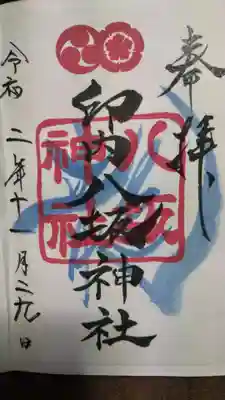 奉拝
印内八坂神社
八坂神社
令和二年十一月二九日